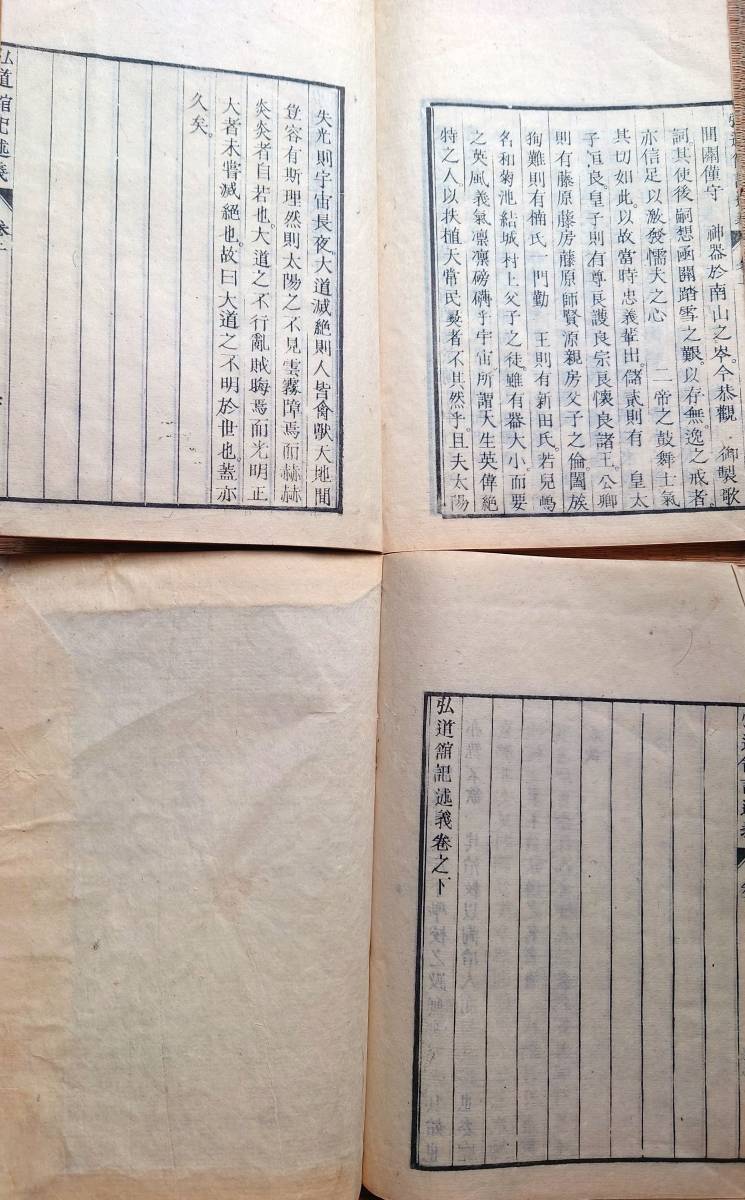 間關僅守　神器於南山之岑。今恭觀　御製歌
詞其使後嗣想凾關踏雪之艱。以存無逸之戒者。
亦信足以激發懦夫之心　二帝之鼓舞士氣
其切如此。以故當時忠義輩出。儲貳則有　皇太
子恒良。皇子則有尊良護良宗良懷良諸王。公卿
則有藤原藤房藤原師賢源親房父子之倫。闔族
狥難則有楠氏一門勤　王則有新田氏。若兒嶋
名和菊池結城村上父子之徒。雖有器大小。而要
之英風義氣凛凛磅礴乎宇宙。所謂天生英偉絶
特之人以扶植天常民彜者。不其然乎。且夫太陽
失光則宇宙長夜。大道滅絶則人皆禽獸。天地間
豈容有斯理。然則太陽之不見雲霧障焉而赫赫
炎炎者自若也。大道之不行亂賊晦焉而光明正
大者未嘗滅絶也。故曰大道之不明於世也。蓋亦
久矣。
弘道館記述義　卷上
弘道館記述義卷之下